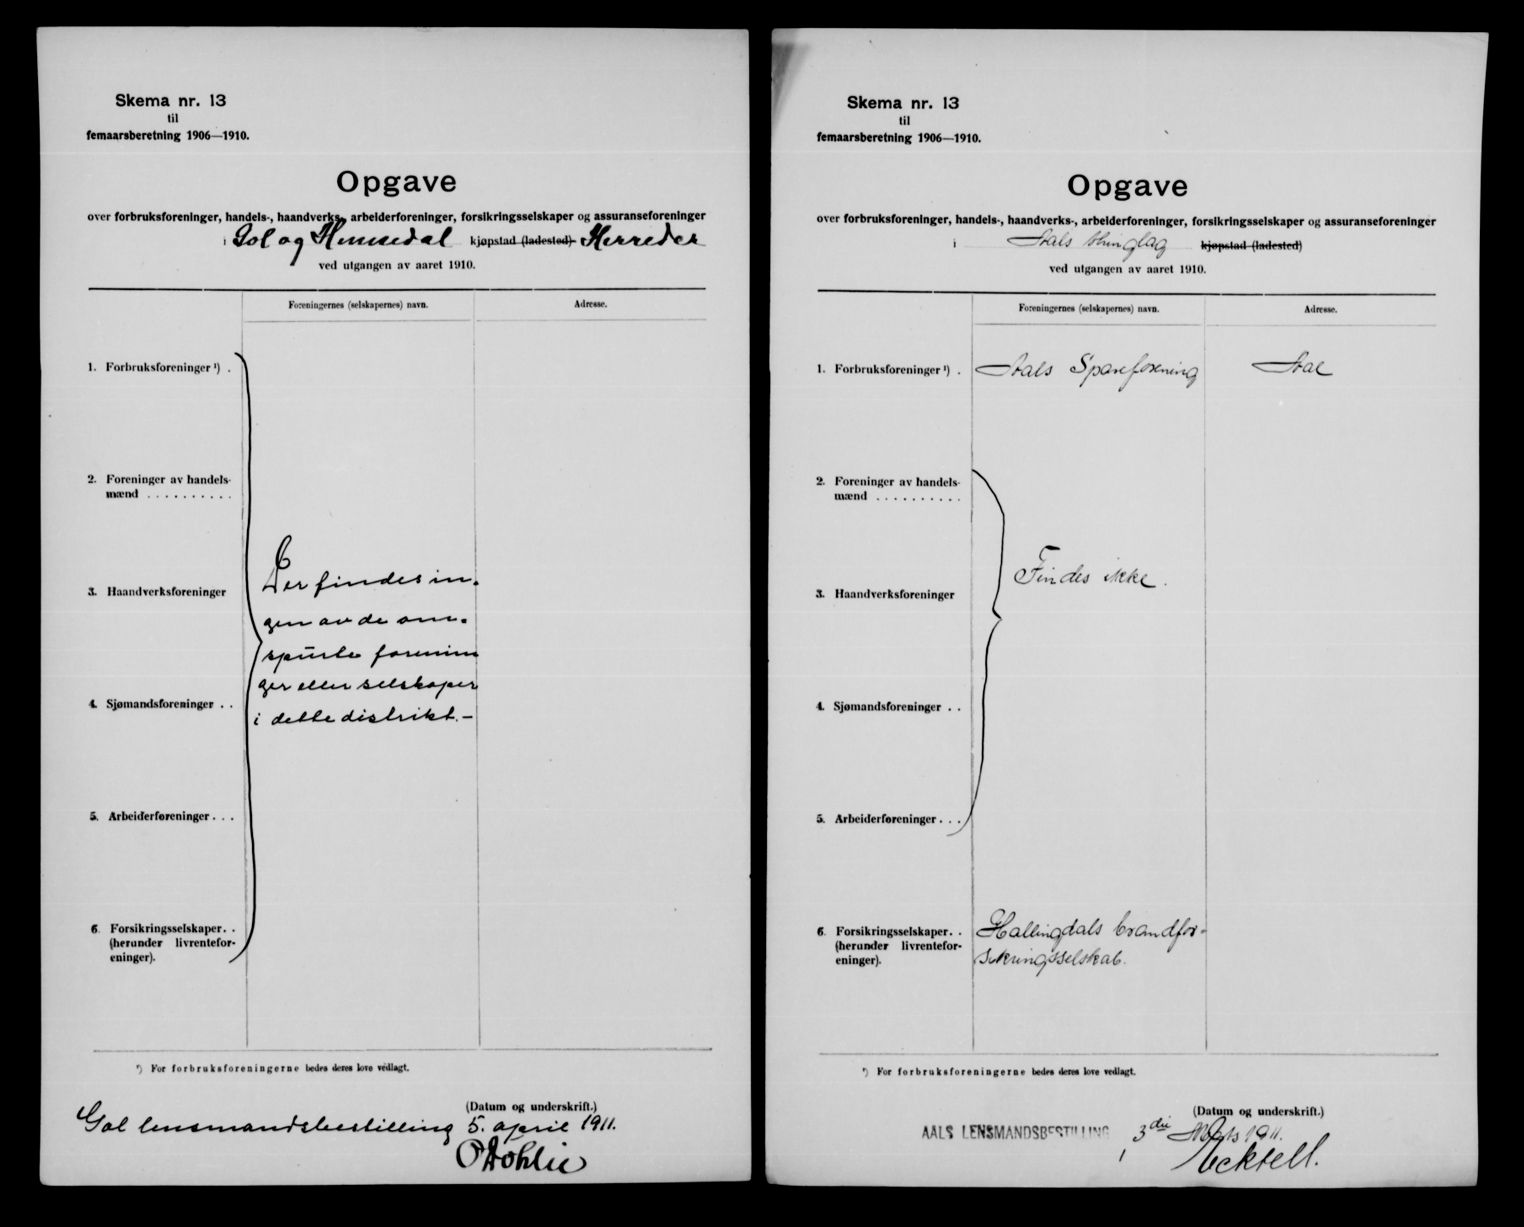 Skema nr. 13
til
femaarsberetning 1906—1910.
Opgave
over forbruksforeninger, handels-, haandverks-, arbeiderforeninger, forsikringsselskaper og assuranseforeninger
i Gol og Hemsedal kjøpstad (ladested) Herreder
ved utgangen av aaret 1910.
Foreningernes (selskapernes) navn.
Adresse.
1. Forbruksforeninger ¹) .
2. Foreninger av handels-
mænd . . . . . . . . . .
3. Haandverksforeninger
Der findes in-
gen av de om-
spurte forenin
ger eller selskaper
i dette distrikt.-
4. Sjømandsforeninger . .
5. Arbeiderforeninger . . .
6. Forsikringsselskaper. .
(herunder livrentefor-
eninger).
¹) For forbruksforeningerne bedes deres love vedlagt.
(Datum og underskrift.)
Gol lensmandsbestilling 5. april 1911.
Skema nr. 13
til
femaarsberetning 1906—1910.
Opgave
over forbruksforeninger, handels-, haandverks-, arbeiderforeninger, forsikringsselskaper og assuranseforeninger
i Aals thinglag kjøpstad (ladested)
ved utgangen av aaret 1910.
Foreningernes (selskapernes) navn.
Adresse.
1. Forbruksforeninger ¹) . Aals Spareforening Aal
2. Foreninger av handels-
mænd . . . . . . . . . .
Findes ikke.
3. Haandverksforeninger
4. Sjømandsforeninger . .
5. Arbeiderforeninger . . .
6. Forsikringsselskaper. . Hallingdals brandfor-
(herunder livrentefor- sikringsselskab.
eninger).
¹) For forbruksforeningerne bedes deres love vedlagt.
(Datum og underskrift.)
AALS LENSMANDSBESTILLING 3die Mars 1911.